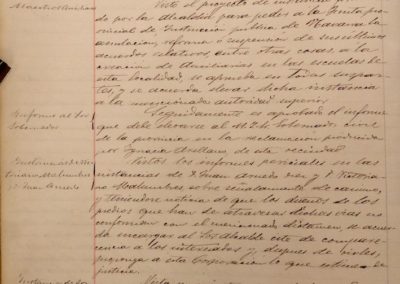 Maestros Auxiliares
Visto el proyecto de instancia
do por la alcaldia para pedir a la Junta pro
vincial de Instrucción publica de Navarra la
anulacion, reforma o suspensión de sus últimos
acuerdos relativos, entre otras cosas a la
creacion de Auxiliarias en las escuelas de
esta localidad, es aprobado en todas sus par
tes, y se acuerda elevar dicha instancia
a la mencionada autoridad superior
Informe al Sor
Gobernador
Seguidamente es aprobado el informe
que debe elevarse al M.I.S. Gobernador civil
de la provincia en la reclamación producida
por Ignacio Arellano de esta vecindad
Vistos los informes periciales en las
instancias de D. Juan Arnedo y D. Victoria
no Malumbres sobre señalamiento de camino,
y teniendose noticia de que los dueños de los
predios que han de atravesar dichas vias no
conforman con el mencionado dictamen, se acuer
da encargar al Sor Alcalde cite de compare
cencia a los interesados y despues de oirles,
proponga a esta Corporacion lo que estime de
justicia.